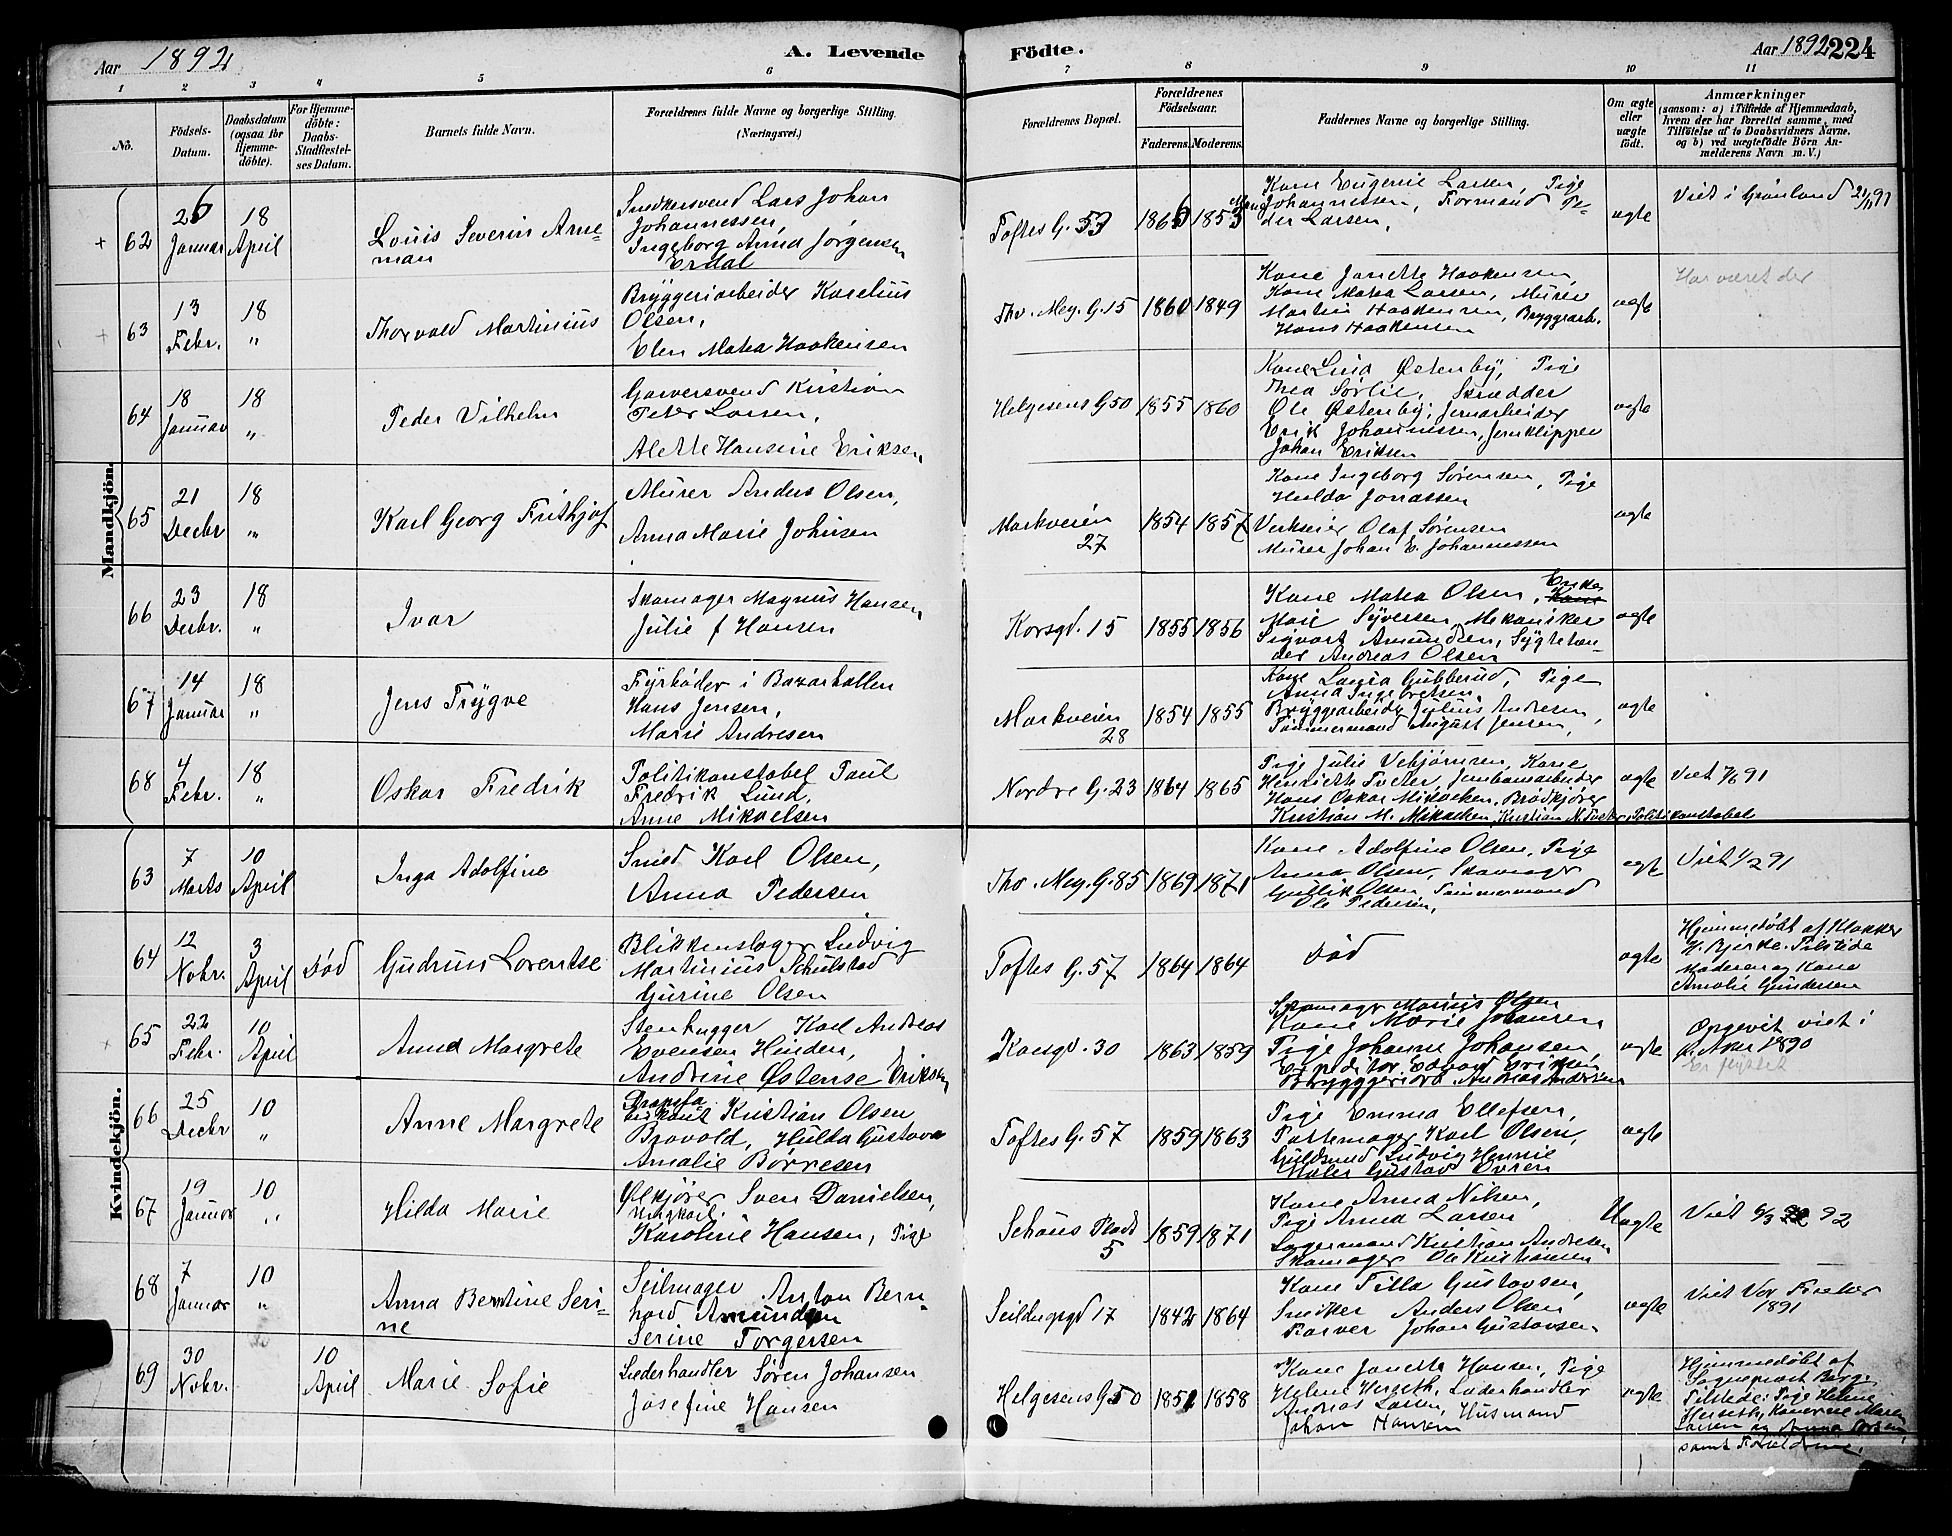 Aar 1892
A. Levende
Födte.
Aar 1892
224
1 2 3 4 5 6 7 8 9 10 11
No.
Födsels-
Datum.
Daabsdatum
(ogsaa for
Hjemme-
döbte).
For Hjemme-
döbte:
Daabs-
Stadfæstel-
ses Datum.
Barnets fulde Navn.
Forældrenes fulde Navne og borgerlige Stilling.
(Næringsvei.)
Forældrenes Bopæl.
Forældrenes
Födselsaar.
Faderens.
Moderens.
Faddernes Navne og borgerlige Stilling.
Om ægte
eller
uægte
födt.
Anmærkninger
(saasom: a) i Tilfælde af Hjemmedaab,
hvem der har forrettet samme, med
Tilföielse af to Daabsvidners Navne.
og b) ved uægtefödte Börn An-
melderens Navn m. V.)
Mandkjön.
+ 62
26
Januar
18
April
Louis Severin Arne=
man
Snedkersvend Lars Johan
Johannessen,
Ingeborg Anna Jørgensen
Erdal
Toftes G. 53
1866
1853
Kone Eugenie Larsen, Pige
Johannessen, Formand Pe-
der Larsen,
ægte
Viet i Grønland 91
+ 63
13
Febr.
18
"
Thorvald Martinius
Bryggeriarbeider Karelius
Olsen,
Elen Mathea Haakensen
Thv. Mey. G. 15
1860
1849
Kone Janette Haakensen,
Kone Mathea Larsen, Murer
Martin Haakensen, Bryggearb.
Hans Haakensen
ægte
Har været der
64
18
Januar
18
"
Peder Vilhelm
Garversvend Kristian
Peter Larsen,
Alette Hansine Eriksen,
Helgesens G 50
1855
1860
Kone Lina Østenby, Pige
Thea Sørlie, Skrædder
Ole Østenby, Jernarbeider
Erik Johannessen, Jernklipper
Johan Eriksen
ægte
65
21
Decbr
18
"
Karl Georg Frithjof
Murer Anders Olsen,
Anna Marie Johnsen
Markveien
27
1854
1857
Kone Ingeborg Sørensen, Pige
Hulda Jonassen
Verkseier Olaf Sørensen
Murer Johan E. Johannessen
ægte
66
23
Decbr.
18
"
Ivar
Skomager Magnus Hansen,
Julie f Hansen
Korsgd. 15
1855
1856
Kone Mathea Olsen, Enke
Marie Syversen, Mekaniker
Sigvart Amundsen, Sygtehan-
der Andreas Olsen
ægte
67
14
Januar
18
"
Jens Trygve
Fyrbøder i Bazarhallen
Hans Jensen,
Marie Andresen
Markveien
28
1854
1855
Kone Laura Gubberud, Pige
Anna Ingebretsen,
Bryggearbeider Julius Andresen,
Tømmermand August Jensen,
ægte
68
4
Febr.
18
"
Oskar Fredrik
Politikonstabel Paul
Fredrik Lund,
Anne Mikaelsen
Nordre G. 23
1864
1865
Pige Julie Vebjørnsen, Kone
Henriette Tveter, Jernbanearbeider
Hans Oskar Mikaelsen, Brødkjører
Kristian M. Mikaelsen, Kristian N Tveter, Politikonstabel
ægte
Viet 7/6 91
Kvindekjön.
63
7
Marts
10
April
Inga Adolfine
Smed Karl Olsen,
Anna Pedersen
Thv. Mey. G. 85
1869
1871
Kone Adolfine Olsen, Pige
Anna Olsen, Skomager
Gullik Olsen, Tømmermand
Ole Pedersen,
ægte
Viet 1/2 91
64
12
Nobr.
3
April
Død
Gudrun Lorentse
Blikkenslager Ludvig
Martinius Schulstad
Gurine Olsen
Toftes G. 57
1864
1864
Død
ægte
Hjemmedøbt af Klokker
H. Bjerke. Tilstede
Moderen og Kone
Amalie Gundersen
65
22
Febr.
10
April
Anna Margrete
Stenhugger Karl Andreas
Evensen Hinden,
Andrine Østense Eriksen
Korsgd. 30
1863
1859
Skomager Marius Olsen
Kone Marie Johansen
Pige Johanne Johansen,
Expeditør Edvard Eriksen
Bryggeriarb. Andreas Andersen
ægte
Opgevet viet i
V. Aker 1890
66
25
Decbr
10
"
Anne Margrete
Kristian Olsen
Brovold, Hulda Gustava
Amalie Børresen
Toftes G. 57
1859
1863
Pige Emma Ellefsen,
Pottemager Karl Olsen,
Guldsmed Ludvig Hennie
Maler Gustav Evren
ægte
67
19
Januar
10
"
Hilda Marie
Ølkjører Sven Danielsen,
Ungkarl.
Karoline Hansen, Pige
Schous Plads
5
1859
1871
Kone Anna Nilsen,
Pige Anna Larsen
Lagermand Kristian Andresen
Skomager Ole Kristiansen
Uægte
Viet 6/3 92
68
7
Januar
10
"
Anna Bentine Seri-
ne
Seilmager Anton Bern-
hard Amundsen
Serine Torgersen
Seildugsgd 17
1842
1864
Kone Tilla Gustavsen,
Snekker Anders Olsen
Farver Johan Gustavsen
ægte
Viet Vor Frelser
1891
69
30
Nobr.
10
April
Marie Sofie
Læderhandler Søren Johansen
Josefine Hansen
Helgesens G 50
1851
1858
Kone Janette Hansen, Pige
Helene Herseth, Læderhandler
Andreas Larsen, Husmand
Johan Hansen
ægte
Hjemmedøbt af
Sogneprest Berg.
Tilstede: Pige Helene
Herseth, Konerne Maren
Larsen og Anna Larsen,
samt Forældrene.